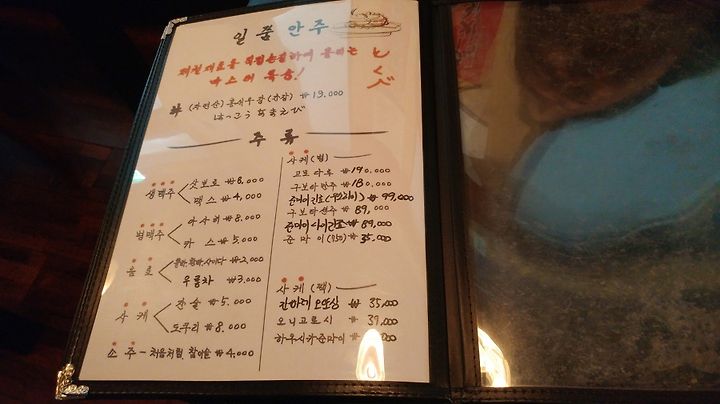 일품 안주
제철재료를 직접손질하여 올리는
とくべ
마스터 특송!
(자연산) 홍새우장 (간장) ₩19,000
はっこうあまえび
주류
생맥주
삿보로 ₩6,000
맥스 ₩4,000
병맥주
아사히 ₩8,000
카스 ₩5,000
음료
콜라, 환타, 사이다 ₩2,000
우롱차 ₩3,000
사케
잔술 ₩5,000
도쿠리 ₩8,000
소주 - 처음처럼, 참이슬 ₩4,000
사케 (병)
고토아루 ₩190,000
구보타만주 ₩180,000
₩99,000
구보타센주 ₩89,000
준마이 사이긴죠 ₩89,000
준마이 (750) ₩35,000
사케 (팩)
간바레 오또상 ₩35,000
오니고로시 ₩39,000
하우시카준마이 ₩